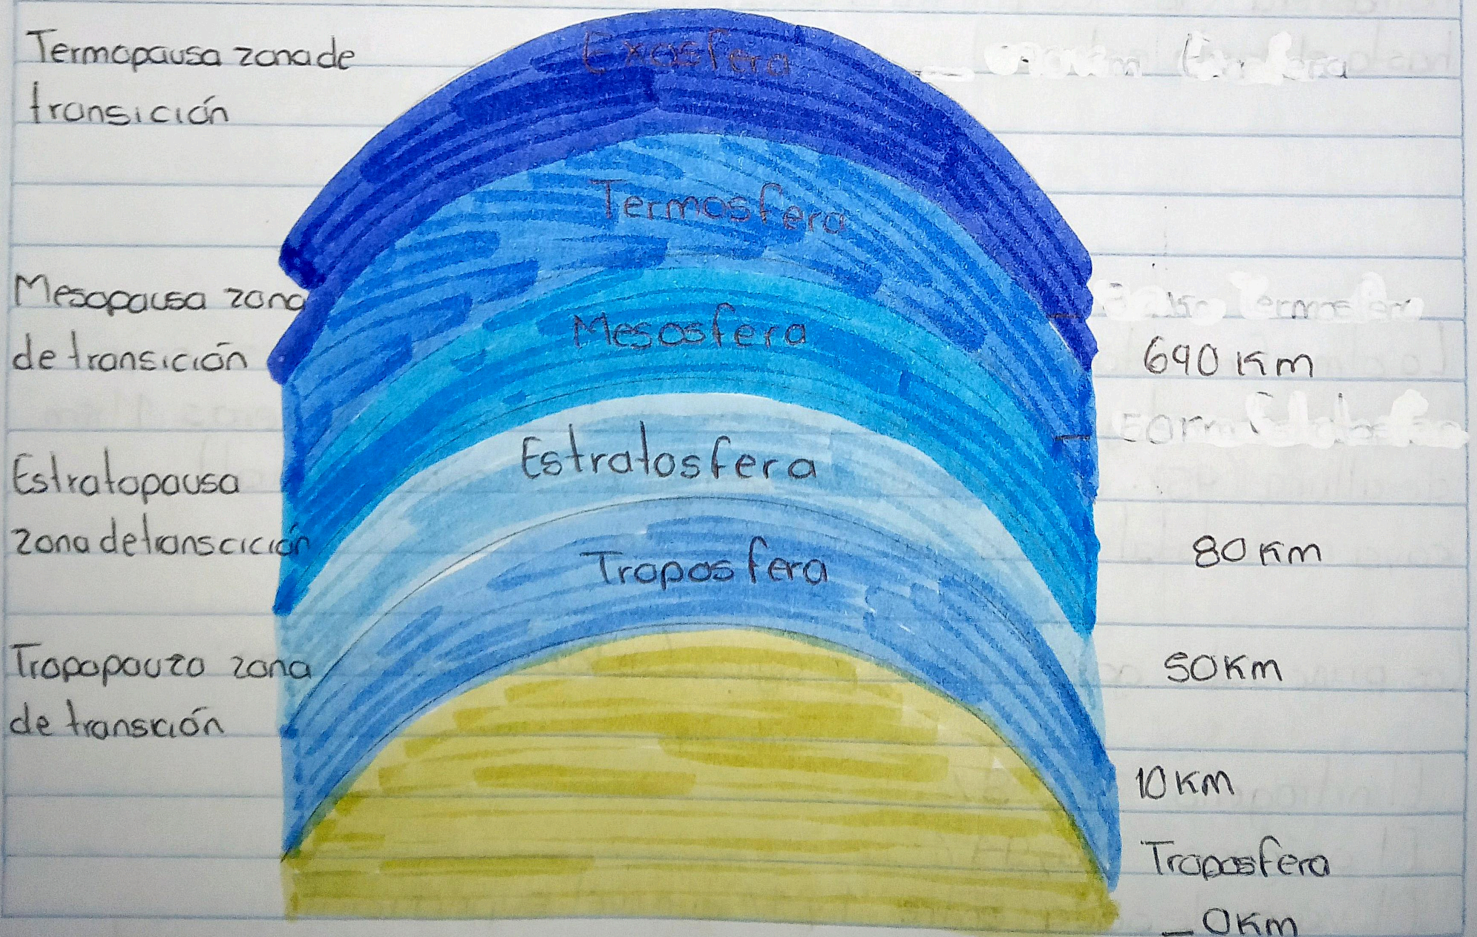 Termopausa zona de
transición
Mesopausa zona
de transición
Estratopausa
zona detranscición
Tropopauza zona
de transición
Exosfera
Termosfera
Mesosfera
Estratosfera
Troposfera
690 Km
80 Km
50 Km
10 Km
Troposfera
_ 0 Km